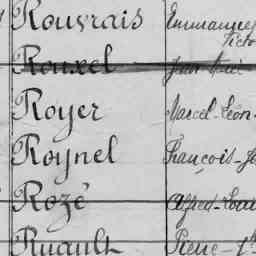 Rouvrais Emmanuel
Victo
Rouxel Jean Marie
Royer Marcel-Léon-
Roynel François-Jo
Rozé Alfred-Loui
Ruault Pierre-